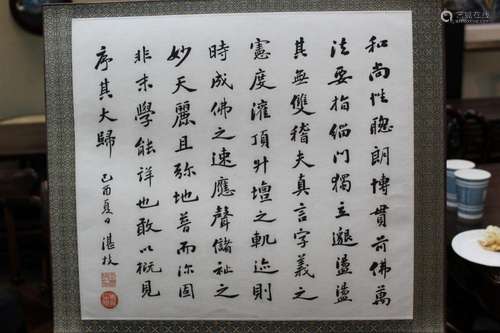 和尚性聰朗博貫前佛萬
法要指緇門獨立邈盪盪
其無雙稽夫真言字義之
憲度灌頂升壇之軌迹則
時成佛之速應聲儲祉之
妙天麗且弥地普而深固
非末學能詳也敢以概見
序其大歸
己酉夏日湛枝